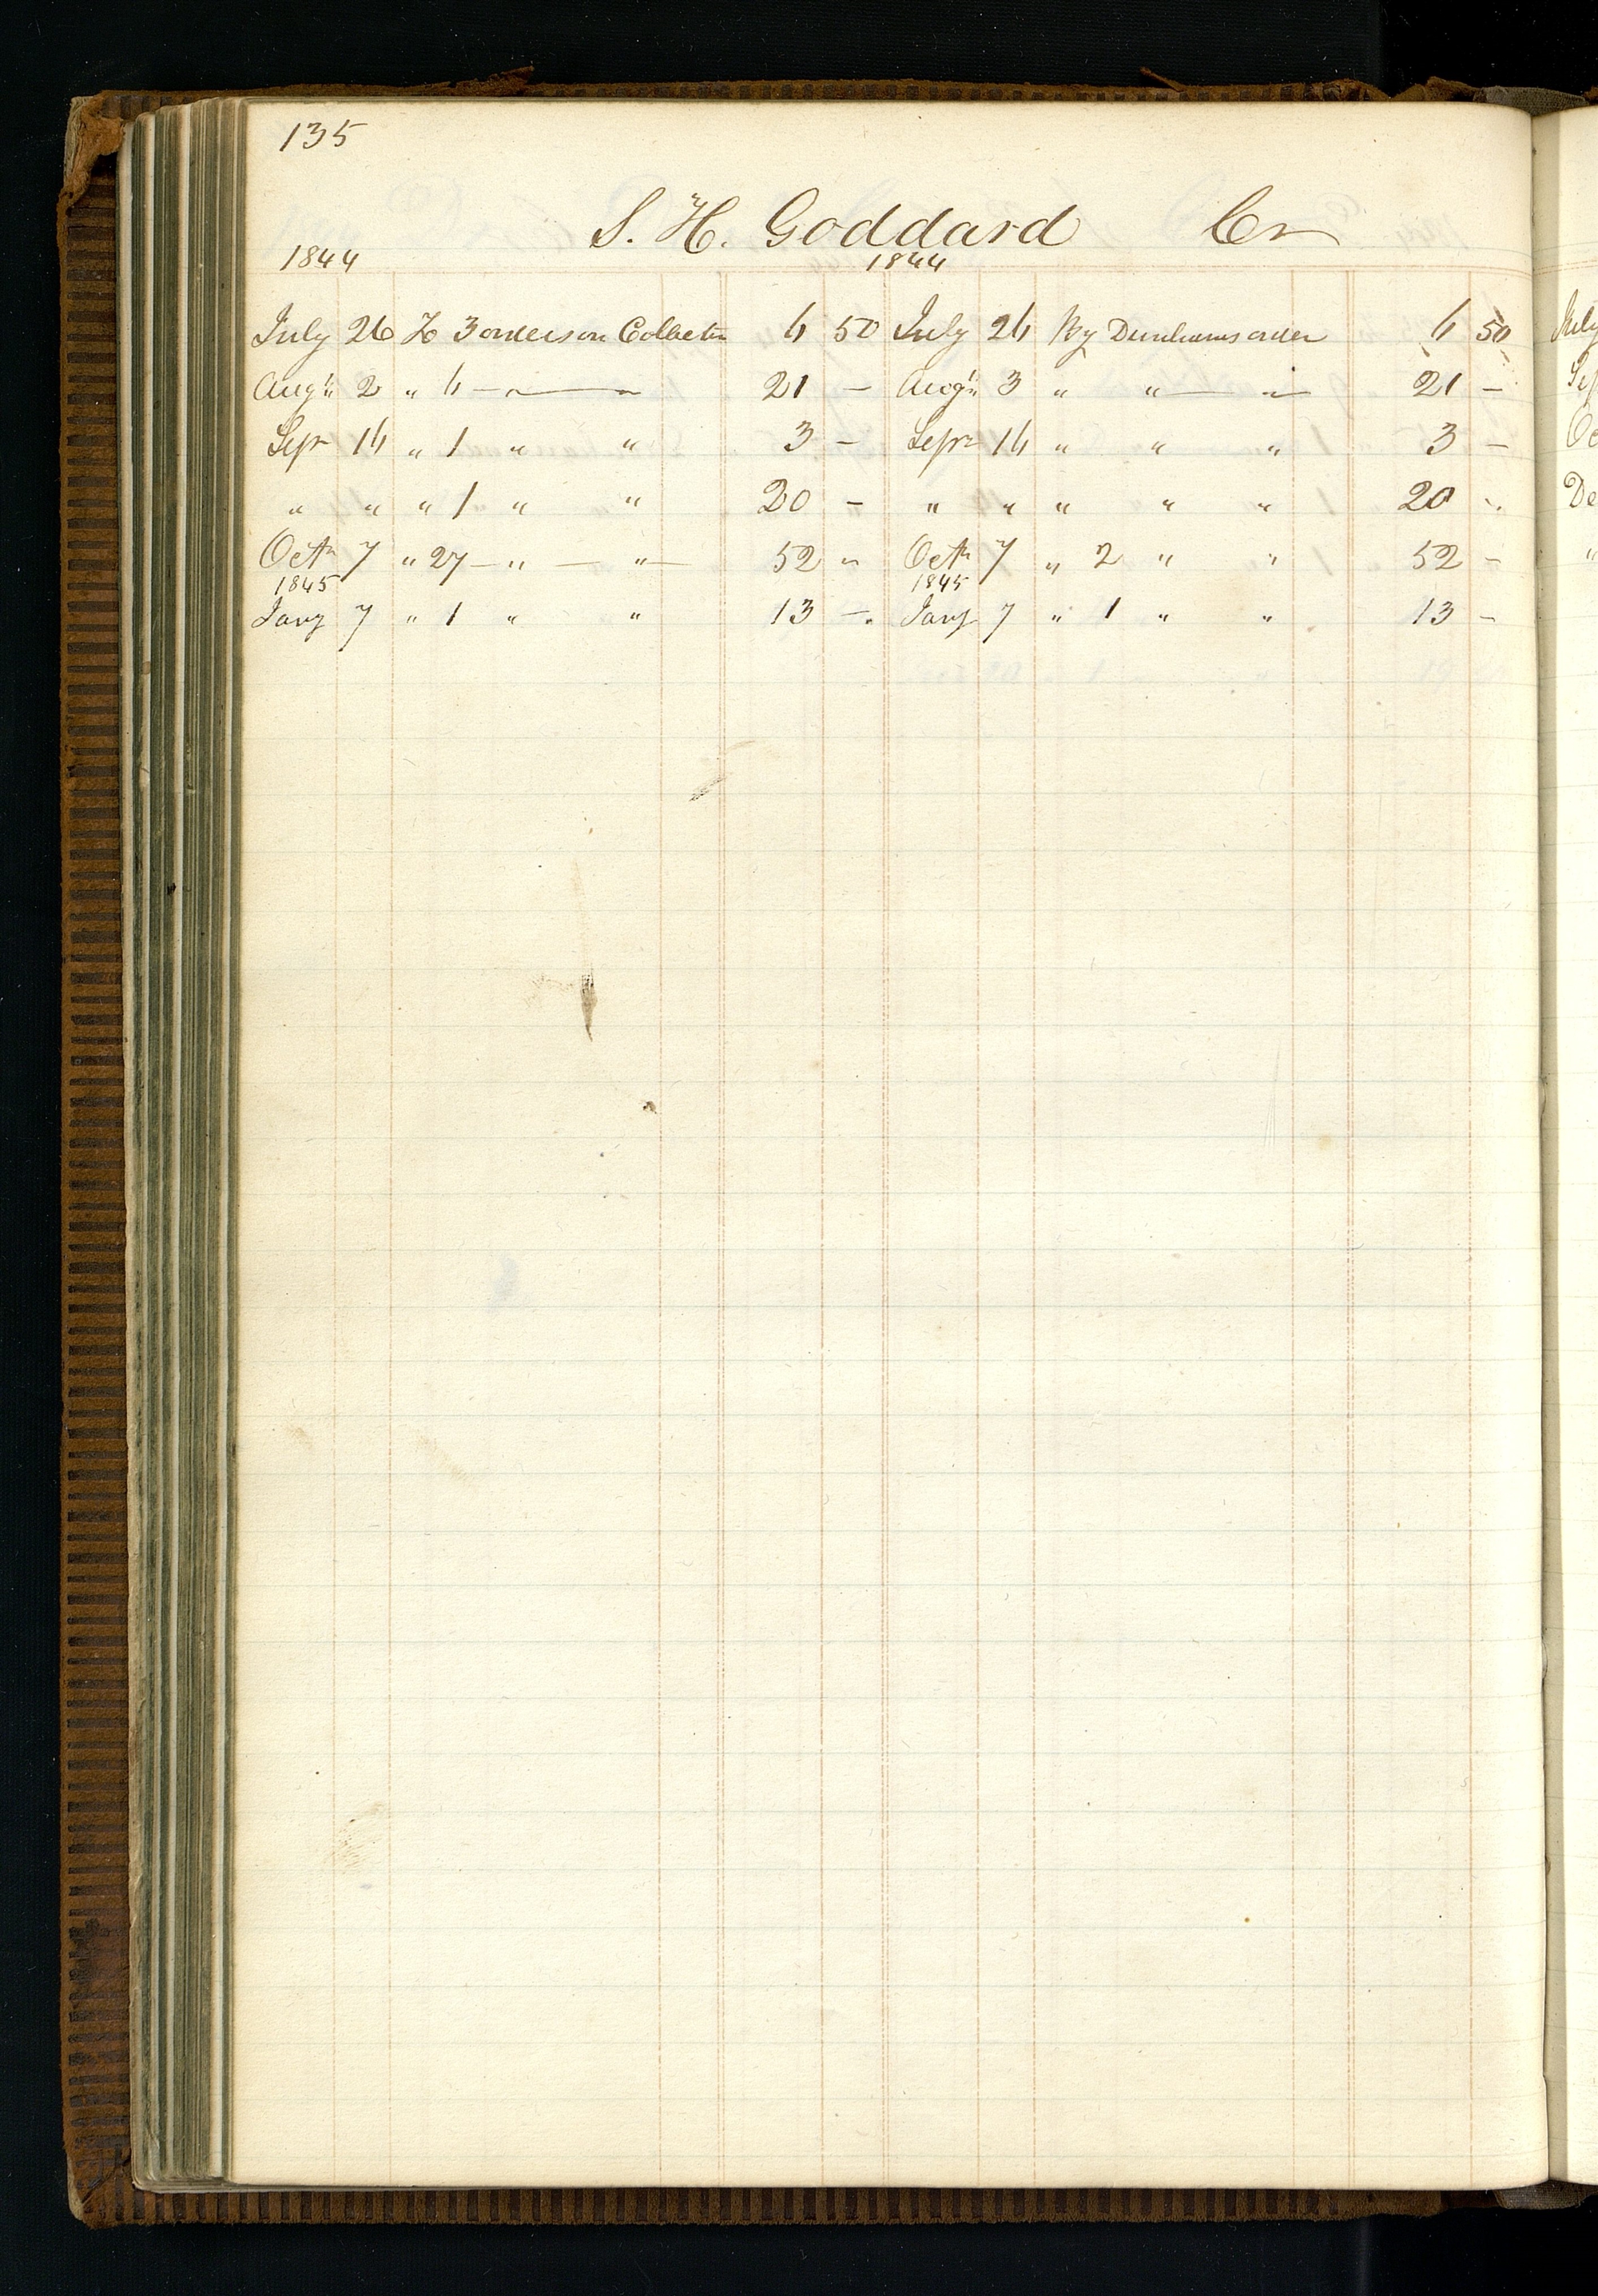 135
S. H. Goddard Cr
1844 1844
July 26 To 3 orders on Collector 6 50 July 26 By Dunhams order 6 50
Augt 2 " 6 — " — " 21 – Augt 3 " " — " — 21 –
Sepr 16 " 1 " " 3 – Sepr 16 " " " 3 –
" " " 1 " " 20 – " " " " " 20 "
Octr 7 " 27 — " — " — 52 " Octr 7 " 2 " " 52 –
1845 1845
Jany 7 " 1 " " 13 – Jany 7 " 1 " " 13 –
July
Sep
Oc
De
"